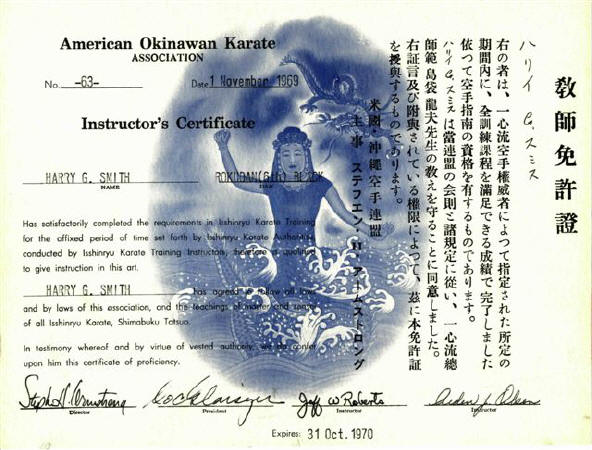 American Okinawan Karate
ASSOCIATION
No. -63-
Date 1 November 1969
Instructor's Certificate
HARRY G. SMITH
NAME
ROKUDAN(6th) BLACK
Has satisfactorily completed the requirements in Isshinryu Karate Training
for the affixed period of time set forth by Isshinryu Karate Authorities
conducted by Isshinryu Karate Training Instructors, therefore is qualified
to give instruction in this art.
HARRY G. SMITH has agreed to follow all laws
and by laws of this association, and the teachings of master and
of all Isshinryu Karate, Shimabuku Tatsuo.
In testimony whereof and by virtue of vested authority, we do confer
upon him this certificate of proficiency.
Director
President
Jeff W Roberts
Instructor
Instructor
Expires: 31 Oct. 1970
教師免許證
ハリイ G. スミス
右の者は、一心流空手權威者によつて指定された所定の
期間内に、全訓練課程を満足できる成績で完了しました
依つて空手指南の資格を有するものであります。
ハリイ G. スミスは當連盟の会則と諸規定に從い、一心流總
師範島袋龍夫先生の敎えを守ることに同意しました。
右証言及び附與されている權限によつて、茲に本免許証
を授與するものであります。
米國・沖縄空手連盟
主事 ステフエン・アームストロング